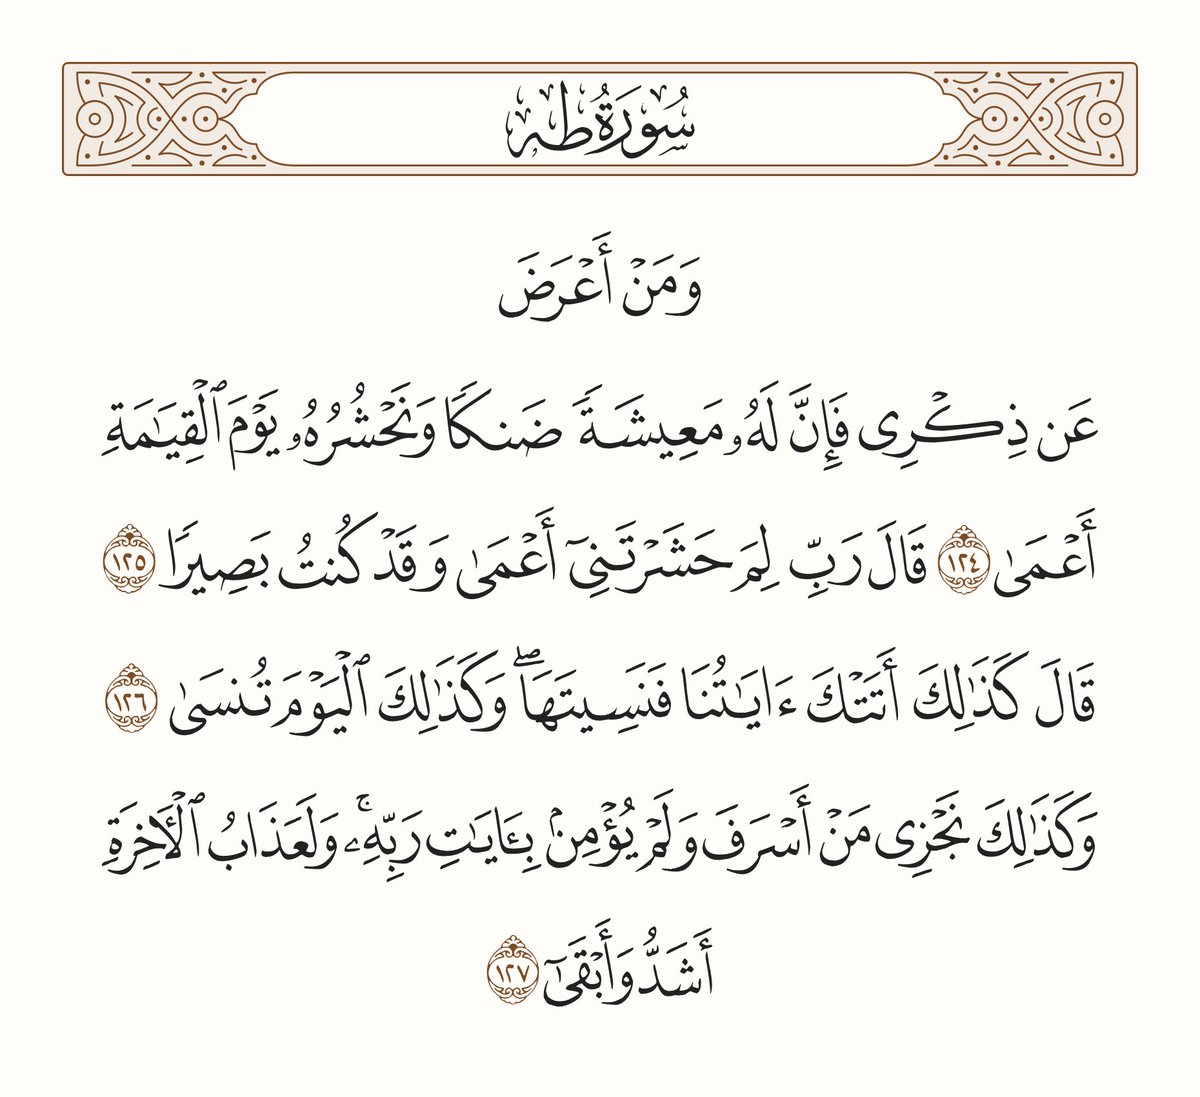 سُورَةُ طه
وَمَنْ أَعْرَضَ
عَن ذِكْرِى فَإِنَّ لَهُۥ مَعِيشَةً ضَنكًا وَنَحْشُرُهُۥ يَوْمَ ٱلْقِيَـٰمَةِ
أَعْمَىٰ ١٢٤ قَالَ رَبِّ لِمَ حَشَرْتَنِىٓ أَعْمَىٰ وَقَدْ كُنتُ بَصِيرًا ١٢٥
قَالَ كَذَٰلِكَ أَتَتْكَ ءَايَـٰتُنَا فَنَسِيتَهَا ۖ وَكَذَٰلِكَ ٱلْيَوْمَ تُنسَىٰ ١٢٦
وَكَذَٰلِكَ نَجْزِى مَنْ أَسْرَفَ وَلَمْ يُؤْمِنۢ بِـَٔايَـٰتِ رَبِّهِۦ ۚ وَلَعَذَابُ ٱلْـَٔاخِرَةِ
أَشَدُّ وَأَبْقَىٰٓ ١٢٧